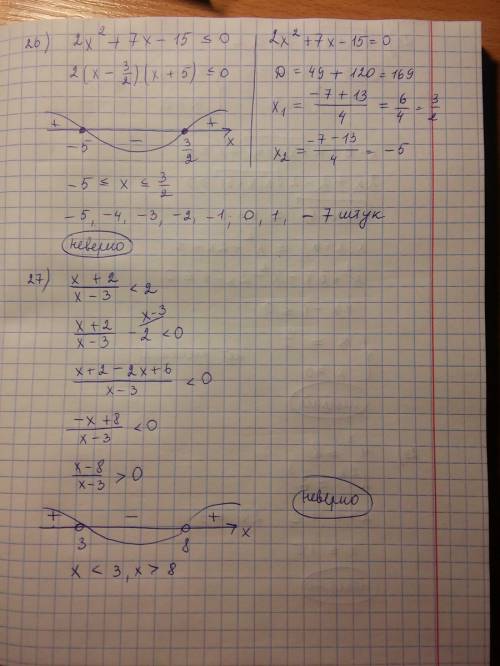 26) 2x² + 7x - 15 ≤ 0
2(x - 3/2)(x + 5) ≤ 0
+ - +
-5 3/2 x
-5 ≤ x ≤ 3/2
-5, -4, -3, -2, -1, 0, 1, - 7 штук
неверно
2x² + 7x - 15 = 0
D = 49 + 120 = 169
x₁ = (-7 + 13)/4 = 6/4 = 3/2
x₂ = (-7 - 13)/4 = -5
27) (x + 2)/(x - 3) < 2
(x + 2)/(x - 3) - 2 < 0
x-3
(x + 2 - 2x + 6)/(x - 3) < 0
(-x + 8)/(x - 3) < 0
(x - 8)/(x - 3) > 0
неверно
+ - +
3 8 x
x < 3, x > 8